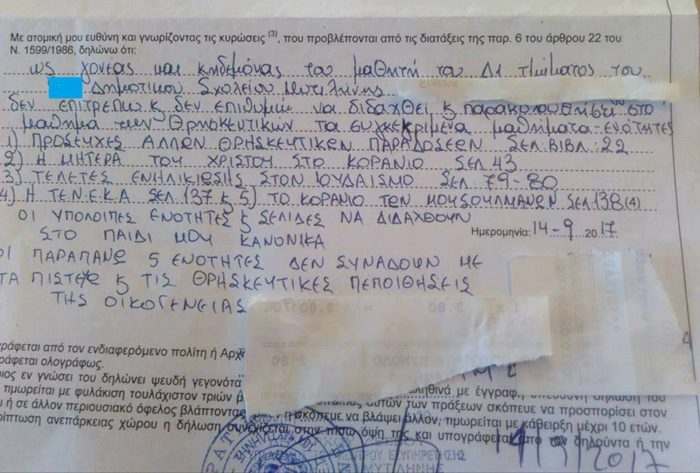 Με ατομική μου ευθύνη και γνωρίζοντας τις κυρώσεις (3), που προβλέπονται από τις διατάξεις της παρ. 6 του άρθρου 22 του
Ν. 1599/1986, δηλώνω ότι:
ως γονέας και κηδεμόνας του μαθητή του Δ1 τμήματος του
Δημοτικού Σχολείου Μυτιλήνης
δεν επιτρέπω κ δεν επιθυμώ να διδαχθεί ς παρακολουθήσει στο
μάθημα των Θρησκευτικών τα συγκεκριμένα μαθήματα-ενότητες
1) ΠΡΟΣΕΥΧΕΣ ΑΛΛΩΝ ΘΡΗΣΚΕΥΤΙΚΩΝ ΠΑΡΑΔΟΣΕΩΝ ΣΕΛ. ΒΙΒΛ: 22
2) Η ΜΗΤΕΡΑ ΤΟΥ ΧΡΙΣΤΟΥ ΣΤΟ ΚΟΡΑΝΙΟ ΣΕΛ. 43
3) ΤΕΛΕΤΕΣ ΕΝΗΛΙΚΙΩΣΗΣ ΣΤΟΝ ΙΟΥΔΑΙΣΜΟ ΣΕΛ. 79-80
4) Η ΤΕ.Ν.Ε.Κ.Α ΣΕΛ. 137 ς 5) ΤΟ ΚΟΡΑΝΙΟ ΤΩΝ ΜΟΥΣΟΥΛΜΑΝΩΝ ΣΕΛ 138 (4)
ΟΙ ΥΠΟΛΟΙΠΕΣ ΕΝΟΤΗΤΕΣ ς ΣΕΛΙΔΕΣ ΝΑ ΔΙΔΑΧΘΟΥΝ
ΣΤΟ ΠΑΙΔΙ ΜΟΥ ΚΑΝΟΝΙΚΑ
Ημερομηνία: 14-9 2017
ΟΙ ΠΑΡΑΠΑΝΩ 5 ΕΝΟΤΗΤΕΣ ΔΕΝ ΣΥΝΑΔΟΥΝ ΜΕ
ΤΑ ΠΙΣΤΕΥΩ ς ΤΙΣ ΘΡΗΣΚΕΥΤΙΚΕΣ ΠΕΠΟΙΘΗΣΕΙΣ
ΤΗΣ ΟΙΚΟΓΕΝΕΙΑΣ
ράφεται από τον ενδιαφερόμενο πολίτη ή Αρχ
ράφεται ολογράφως.
οιος εν γνώσει του δηλώνει ψευδή γεγονότα
τιμωρείται με φυλάκιση τουλάχιστον τριών
ληθινά με έγγραφ. υπεύθυνη δήλωση του
αυτών των πράξεων σκόπευε να προσπορίσει στον
υ ή σε άλλον περιουσιακό όφελος βλάπτοντας
ή σκόπευε να βλάψει άλλον, τιμωρείται με κάθειρξη μέχρι 10 ετών.
ρίπτωση ανεπάρκειας χώρου η δήλωση συνεχίζεται στην πίσω όψη της και υπογράφεται από τον δηλούντα ή την
ΕΞΥΠΗΡΕΤΗΣΗΣ
ΜΥΤΙΛΗΝΗΣ
14/9/2017